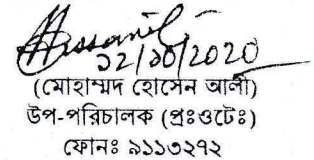 ১২/১০/২০২০
(মোহাম্মদ হোসেন আলী)
উপ-পরিচালক (প্রঃওটেঃ)
ফোনঃ ৯১১৩২৭২